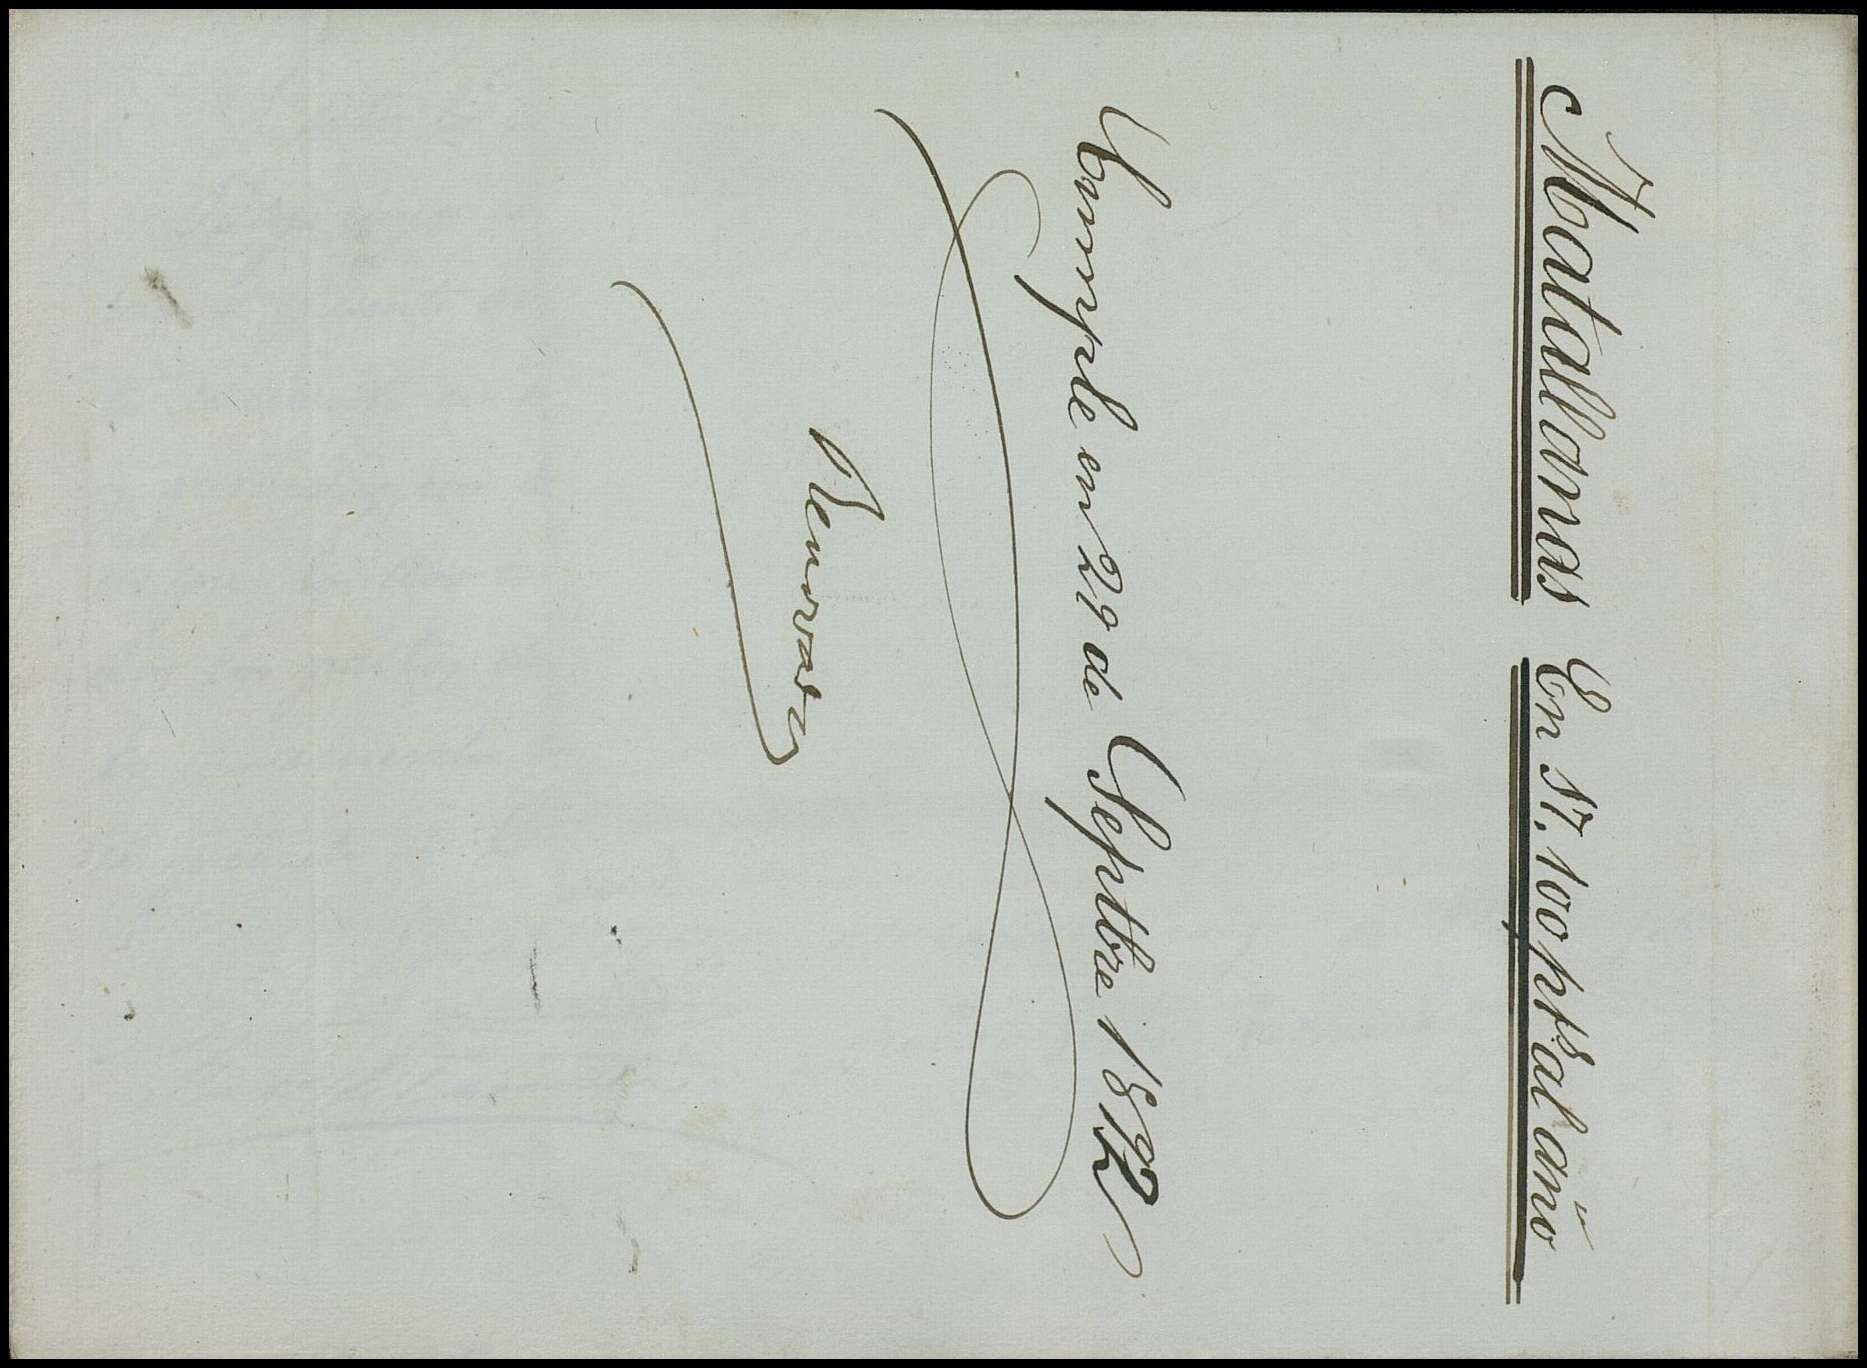 Matallanas En 57.100 pts al año
Cumple en 29 de Septbre 1872
Renovada